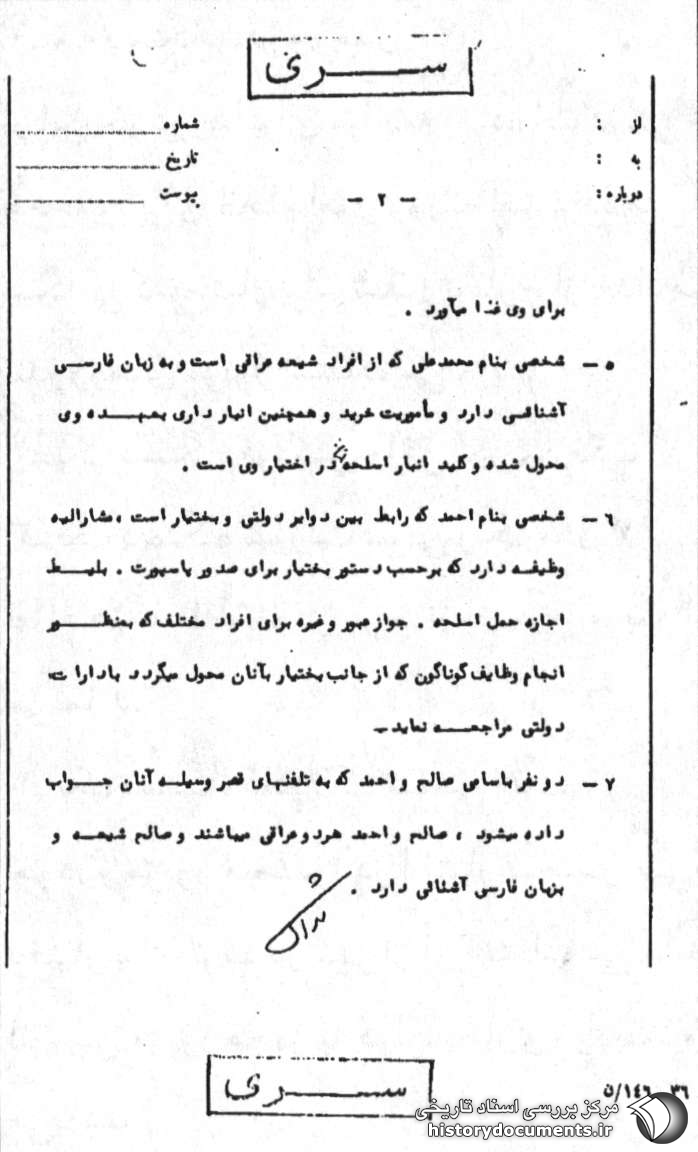 ســـری
از :
به :
درباره :
شماره
تاریخ
پیوست
— ۲ —
برای وی غذا میآورد .
۵ — شخصی بنام محمدعلی که از افراد شیعه عراقی است و به زبان فارســی
آشنائــی دارد و مأموریت خرید و همچنین انبار داری بعهـــده وی
محول شده و کلید انبار اسلحه در اختیار وی است .
۶ — شخصی بنام احمد که رابط بین دوایر دولتی و بختیار است ، مشارالیه
وظیفــه دارد که برحسب دستور بختیار برای صدور پاسپورت . بلیــط
اجازه حمل اسلحه . جواز عبور و غیره برای افراد مختلف که بمنظـــور
انجام وظایف گوناگون که از جانب بختیار بآنان محول میگردد بادارات
دولتی مراجعــه نماید —
۷ — دو نفر باسامی صالح و احمد که به تلفنهای قصر وسیله آنان جـــواب
داده میشود ، صالح و احمد هردو عراقی میباشند و صالح شیعــه و
بزبان فارسی آشنائی دارد .
ســـری
۳۶ — ۱۴۶/ن
مرکز بررسی اسناد تاریخی
historydocuments.ir